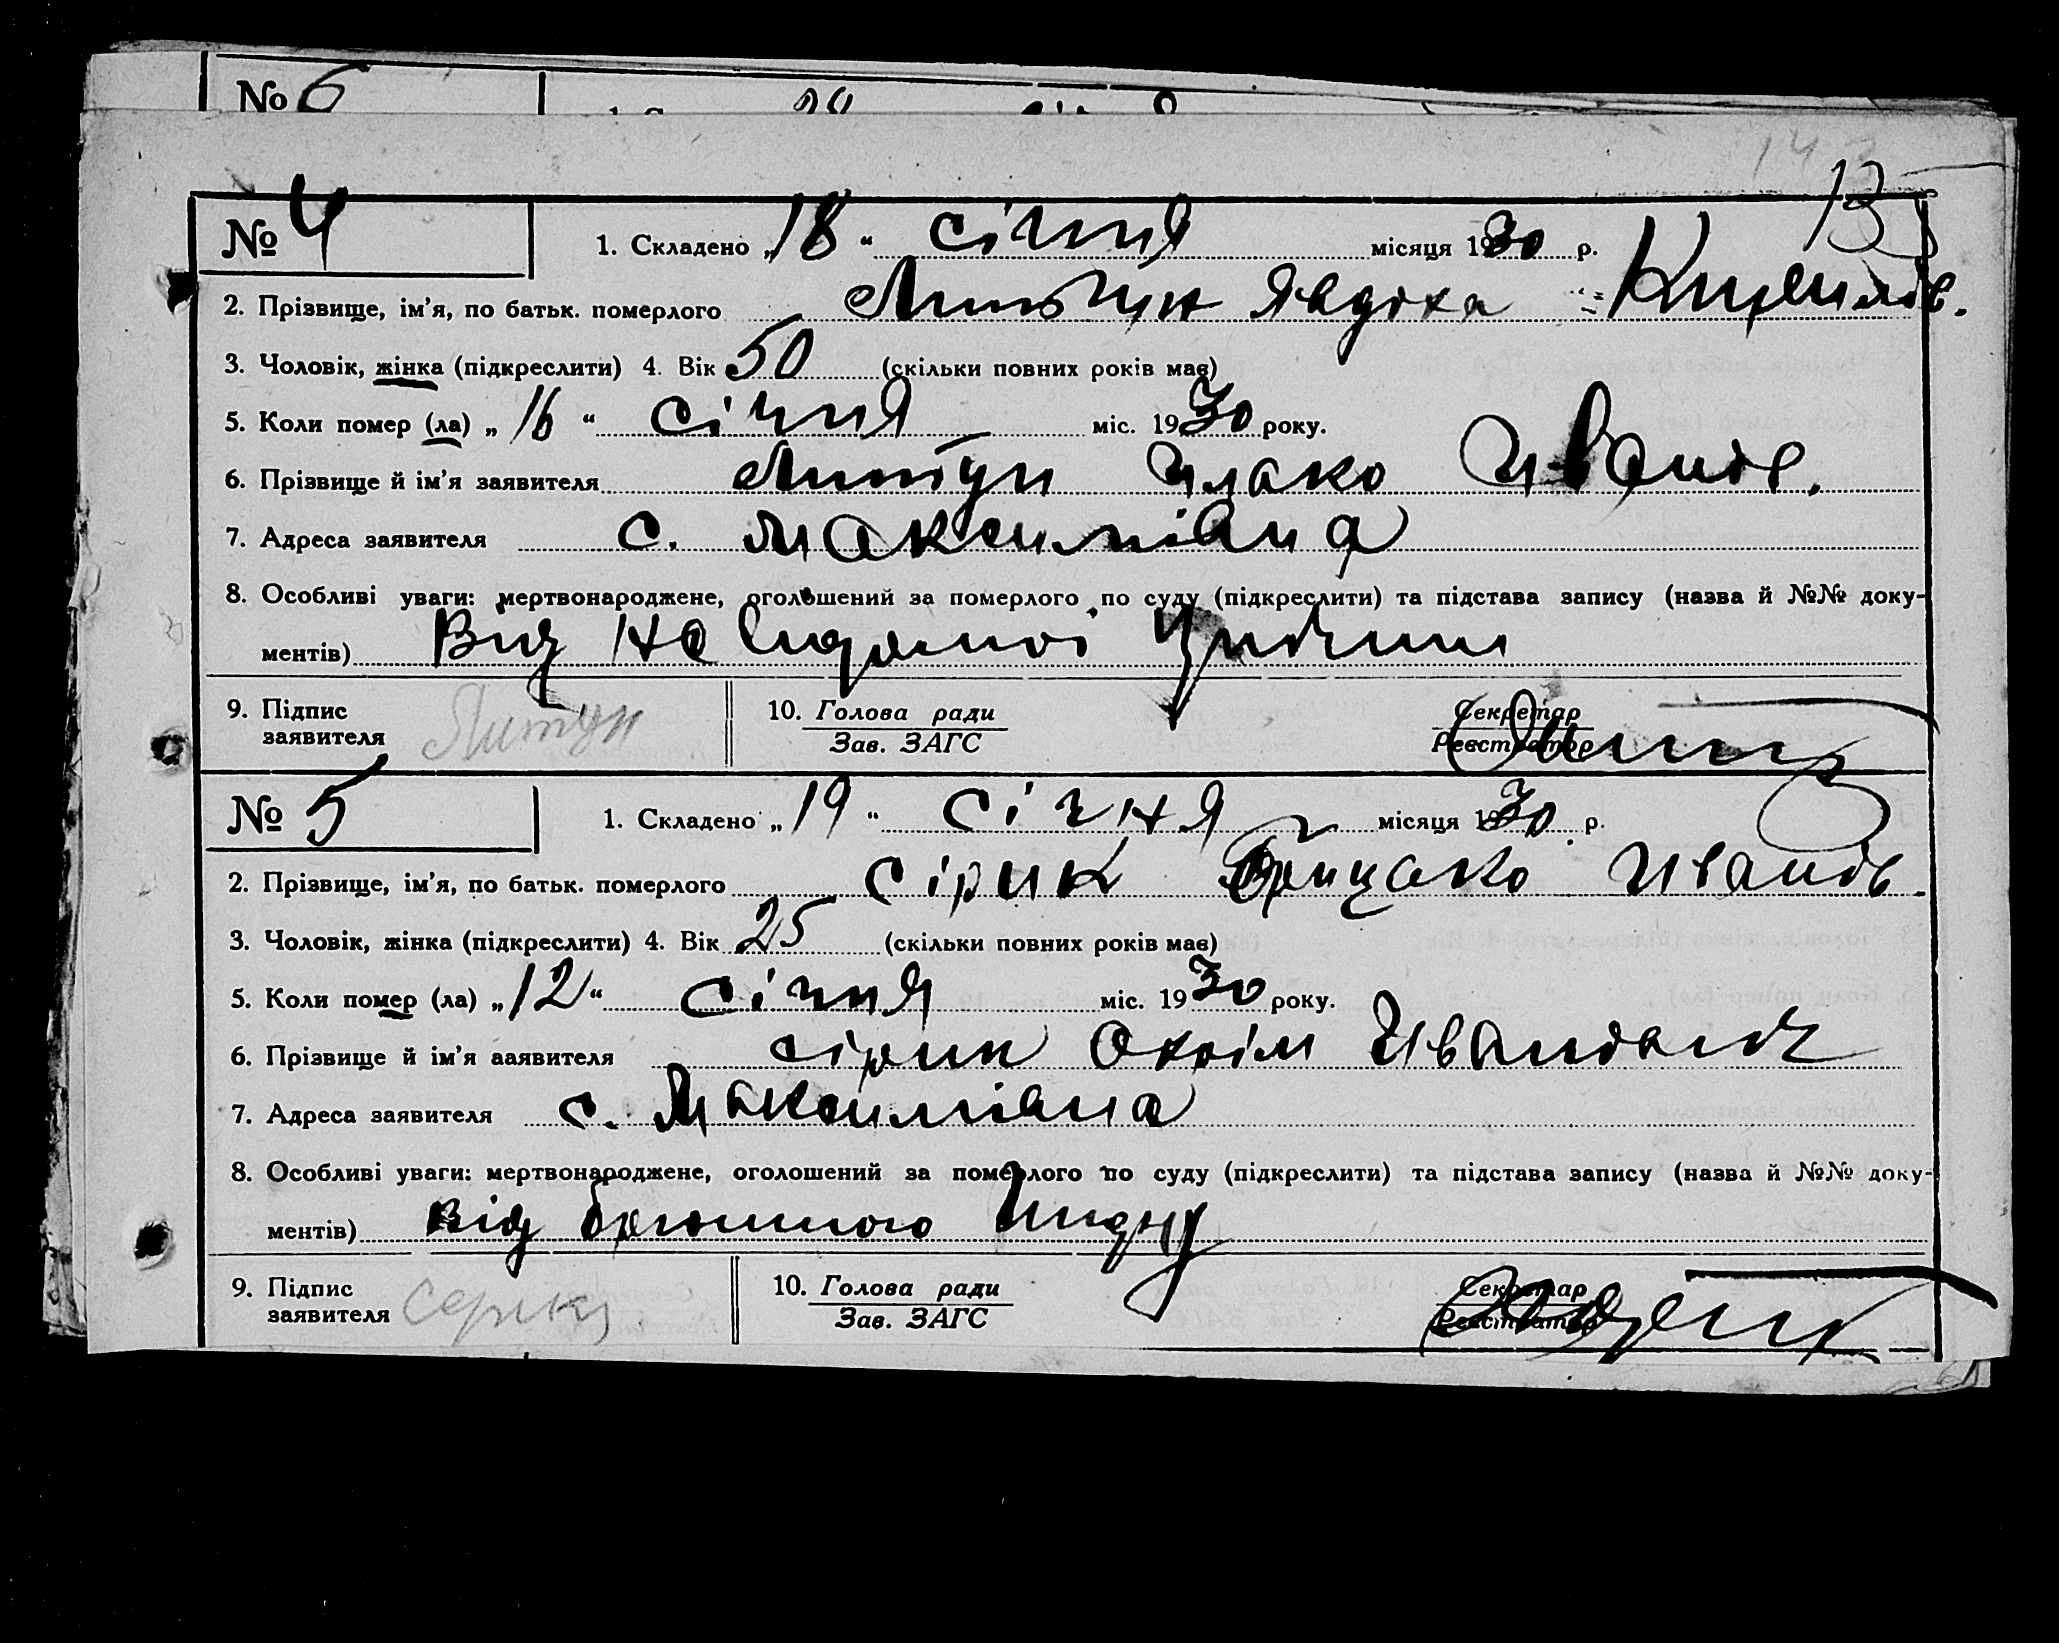 № 6
14
13
№ 4 1. Складено „18“ січня місяця 1930 р.
2. Прізвище, ім’я, по батьк. померлого Явдоха Кирилів.
3. Чоловік, жінка (підкреслити) 4. Вік 50 (скільки повних років має)
5. Коли помер (ла) „16“ січня міс. 1930 року.
6. Прізвище й ім’я заявителя Литтун Ілько Иванів.
7. Адреса заявителя с. Максимівна
8. Особливі уваги: мертвонароджене, оголошений за померлого по суду (підкреслити) та підстава запису (назва й №№ доку-
ментів) Від
9. Підпис
заявителя
10. Голова ради
Зав. ЗАГС
Секретар
Реєстратор
№ 5 1. Складено „19“ січня місяця 1930 р.
2. Прізвище, ім’я, по батьк. померлого Сірик Грицько Иванів.
3. Чоловік, жінка (підкреслити) 4. Вік 25 (скільки повних років має)
5. Коли помер (ла) „12“ січня міс. 1930 року.
6. Прізвище й ім’я ааявителя Сірик Охрім Иванович
7. Адреса заявителя с. Максимівна
8. Особливі уваги: мертвонароджене, оголошений за померлого по суду (підкреслити) та підстава запису (назва й №№ доку-
ментів) від брюшного тифу
9. Підпис
заявителя
10. Голова ради
Зав. ЗАГС
Секретар
Реєстратор